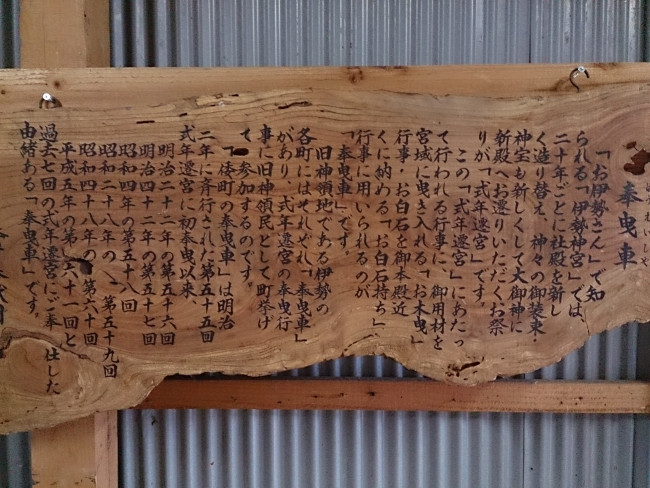 奉曳車
「お伊勢さん」で知
られる「伊勢神宮」では、
二十年ごとに社殿を新し
く造り替え、神々の御装束・
神宝も新しくして大御神に
新殿へお遷りいただくお祭
りが「式年遷宮」です。
この「式年遷宮」にあたっ
て行われる行事に、御用材を
宮域に曳き入れる「お木曳」
行事・お白石を御本殿近
くに納める「お白石持ち」
行事に用いられるのが
「奉曳車」です。
旧神領地である伊勢の
各町にはそれぞれ「奉曳車」
があり、式年遷宮の奉曳行
事に旧神領民として町挙げ
て、参加するのです。
「倭町の奉曳車」は明治
二年に斉行された第五十五回
式年遷宮に初奉曳以来、
明治二十二年の第五十六回
明治四十二年の第五十七回
昭和四年の第五十八回
昭和二八年の第五十九回
昭和四十八年の第六十回
平成五年の第六十一回と
過去七回の式年遷宮にご奉仕した
由緒ある「奉曳車」です。